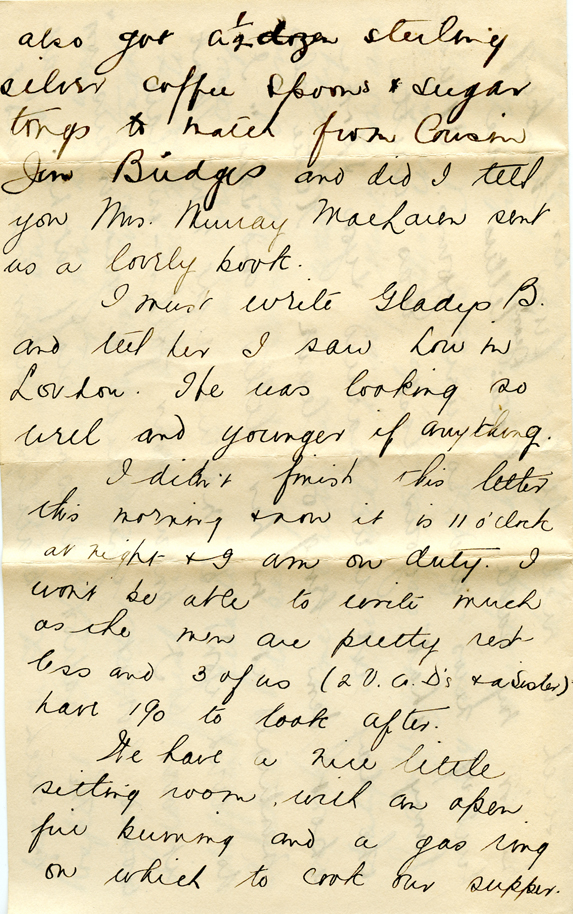 also got a ½ dozen sterling
silver coffee spoons & sugar
tongs to match from Cousin
Jim Bridges and did I tell
you Mrs. Murray MacLaren sent
us a lovely book.
I must write Gladys B.
and tell her I saw in
London. He was looking so
well and younger if anything.
I didn't finish this letter
this morning & now it is 11 o'clock
at night & I am on duty. I
won't be able to write much
as the men are pretty rest
less and 3 of us (2 V.A.D's & a Sister)
have 190 to look after.
We have a nice little
sitting room, with an open
fire burning and a gas ring
on which to cook our supper.